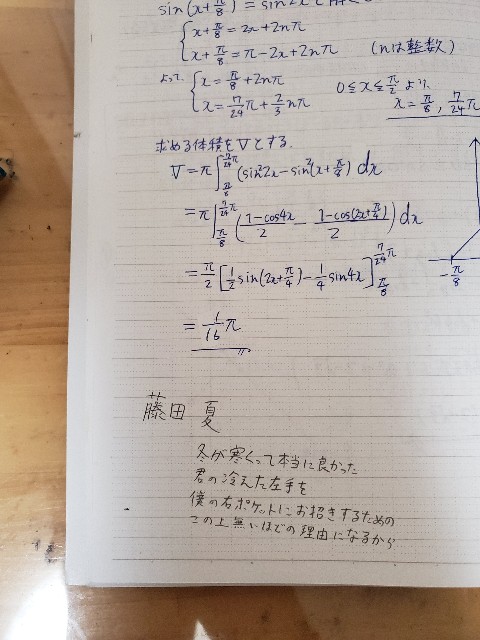 sin(x+π/8) = sin2x
{ x+π/8 = 2x+2nπ
x+π/8 = π-2x+2nπ (nは整数)
よって { x = π/8+2nπ 0≦x≦π/2 より
x = 7/24π+2/3nπ x = π/8, 7/24π
求める体積をVとする。
V = π∫_{π/8}^{7/24π} (sin²2x-sin²(x+π/8)) dx
= π∫_{π/8}^{7/24π} ((1-cos4x)/2 - (1-cos(2x+π/4))/2) dx
= π/2 [1/2 sin(2x+π/4) - 1/4 sin4x]_{π/8}^{7/24π}
-π/8
= 1/16 π
藤田 夏
冬が寒くって本当に良かった
君の冷えた左手を
僕の右ポケットにお招きするための
この上無いほどの理由になるから